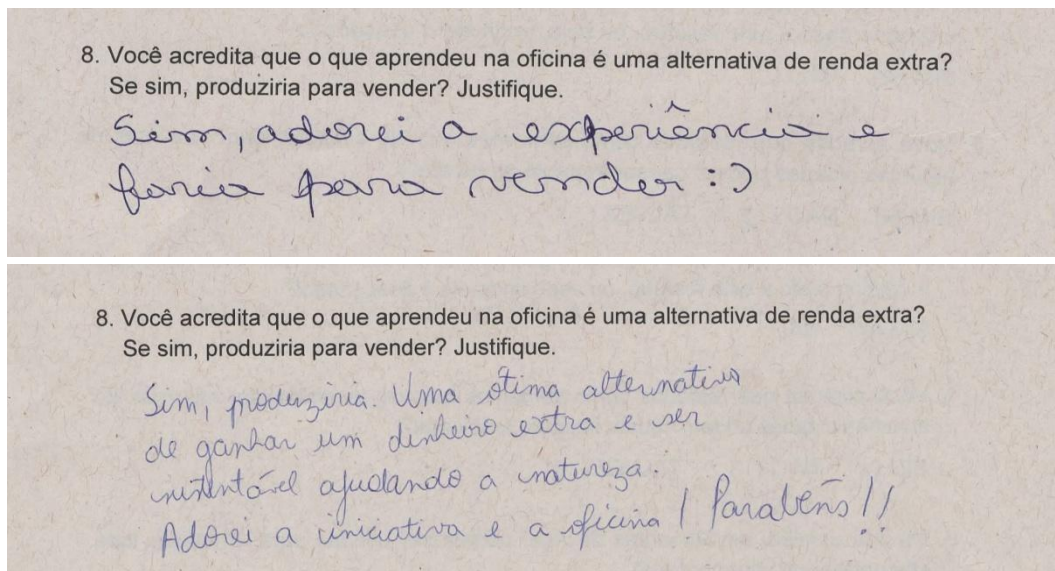 8. Você acredita que o que aprendeu na oficina é uma alternativa de renda extra?
Se sim, produziria para vender? Justifique.
Sim, adorei a experiência e
faria para vender :)
8. Você acredita que o que aprendeu na oficina é uma alternativa de renda extra?
Se sim, produziria para vender? Justifique.
Sim, produziria. Uma ótima alternativa
de ganhar um dinheiro extra e ser
sustentável ajudando a natureza.
Adorei a iniciativa e a oficina! Parabéns!!